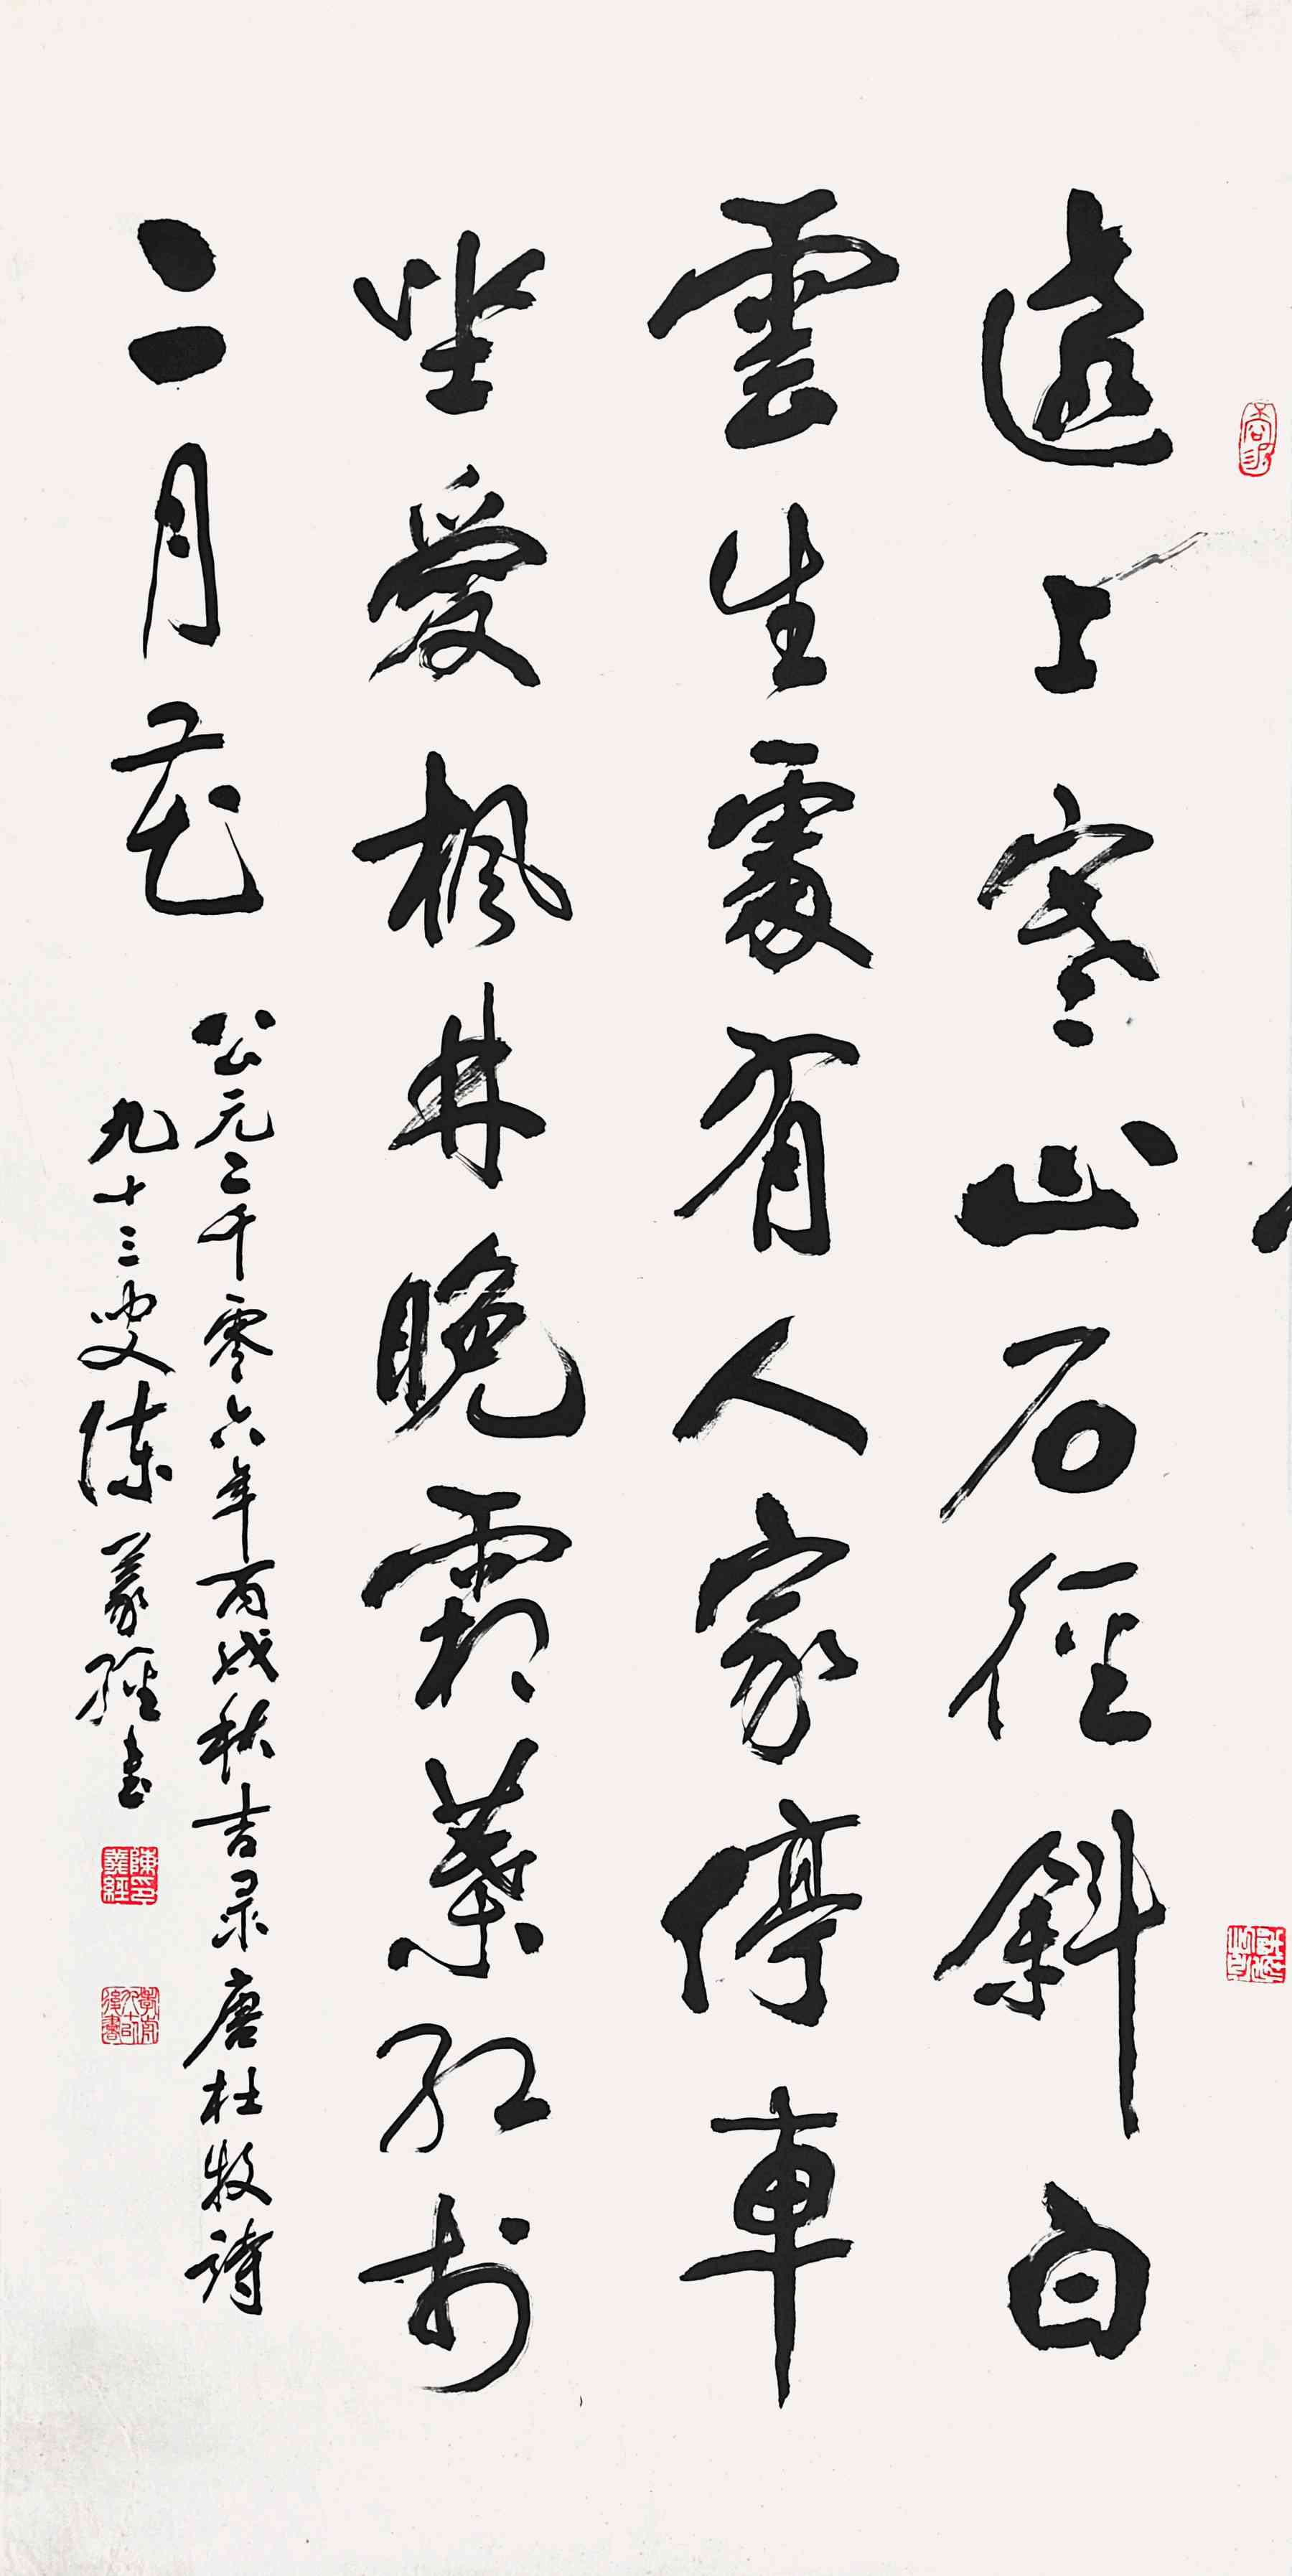 遠上寒山石徑斜白
雲生處有人家停車
坐愛楓林晚霜葉红於
二月花
公元二千零六年丙戌秋吉录唐杜牧诗
九十三叟陈義經书
陳印義經